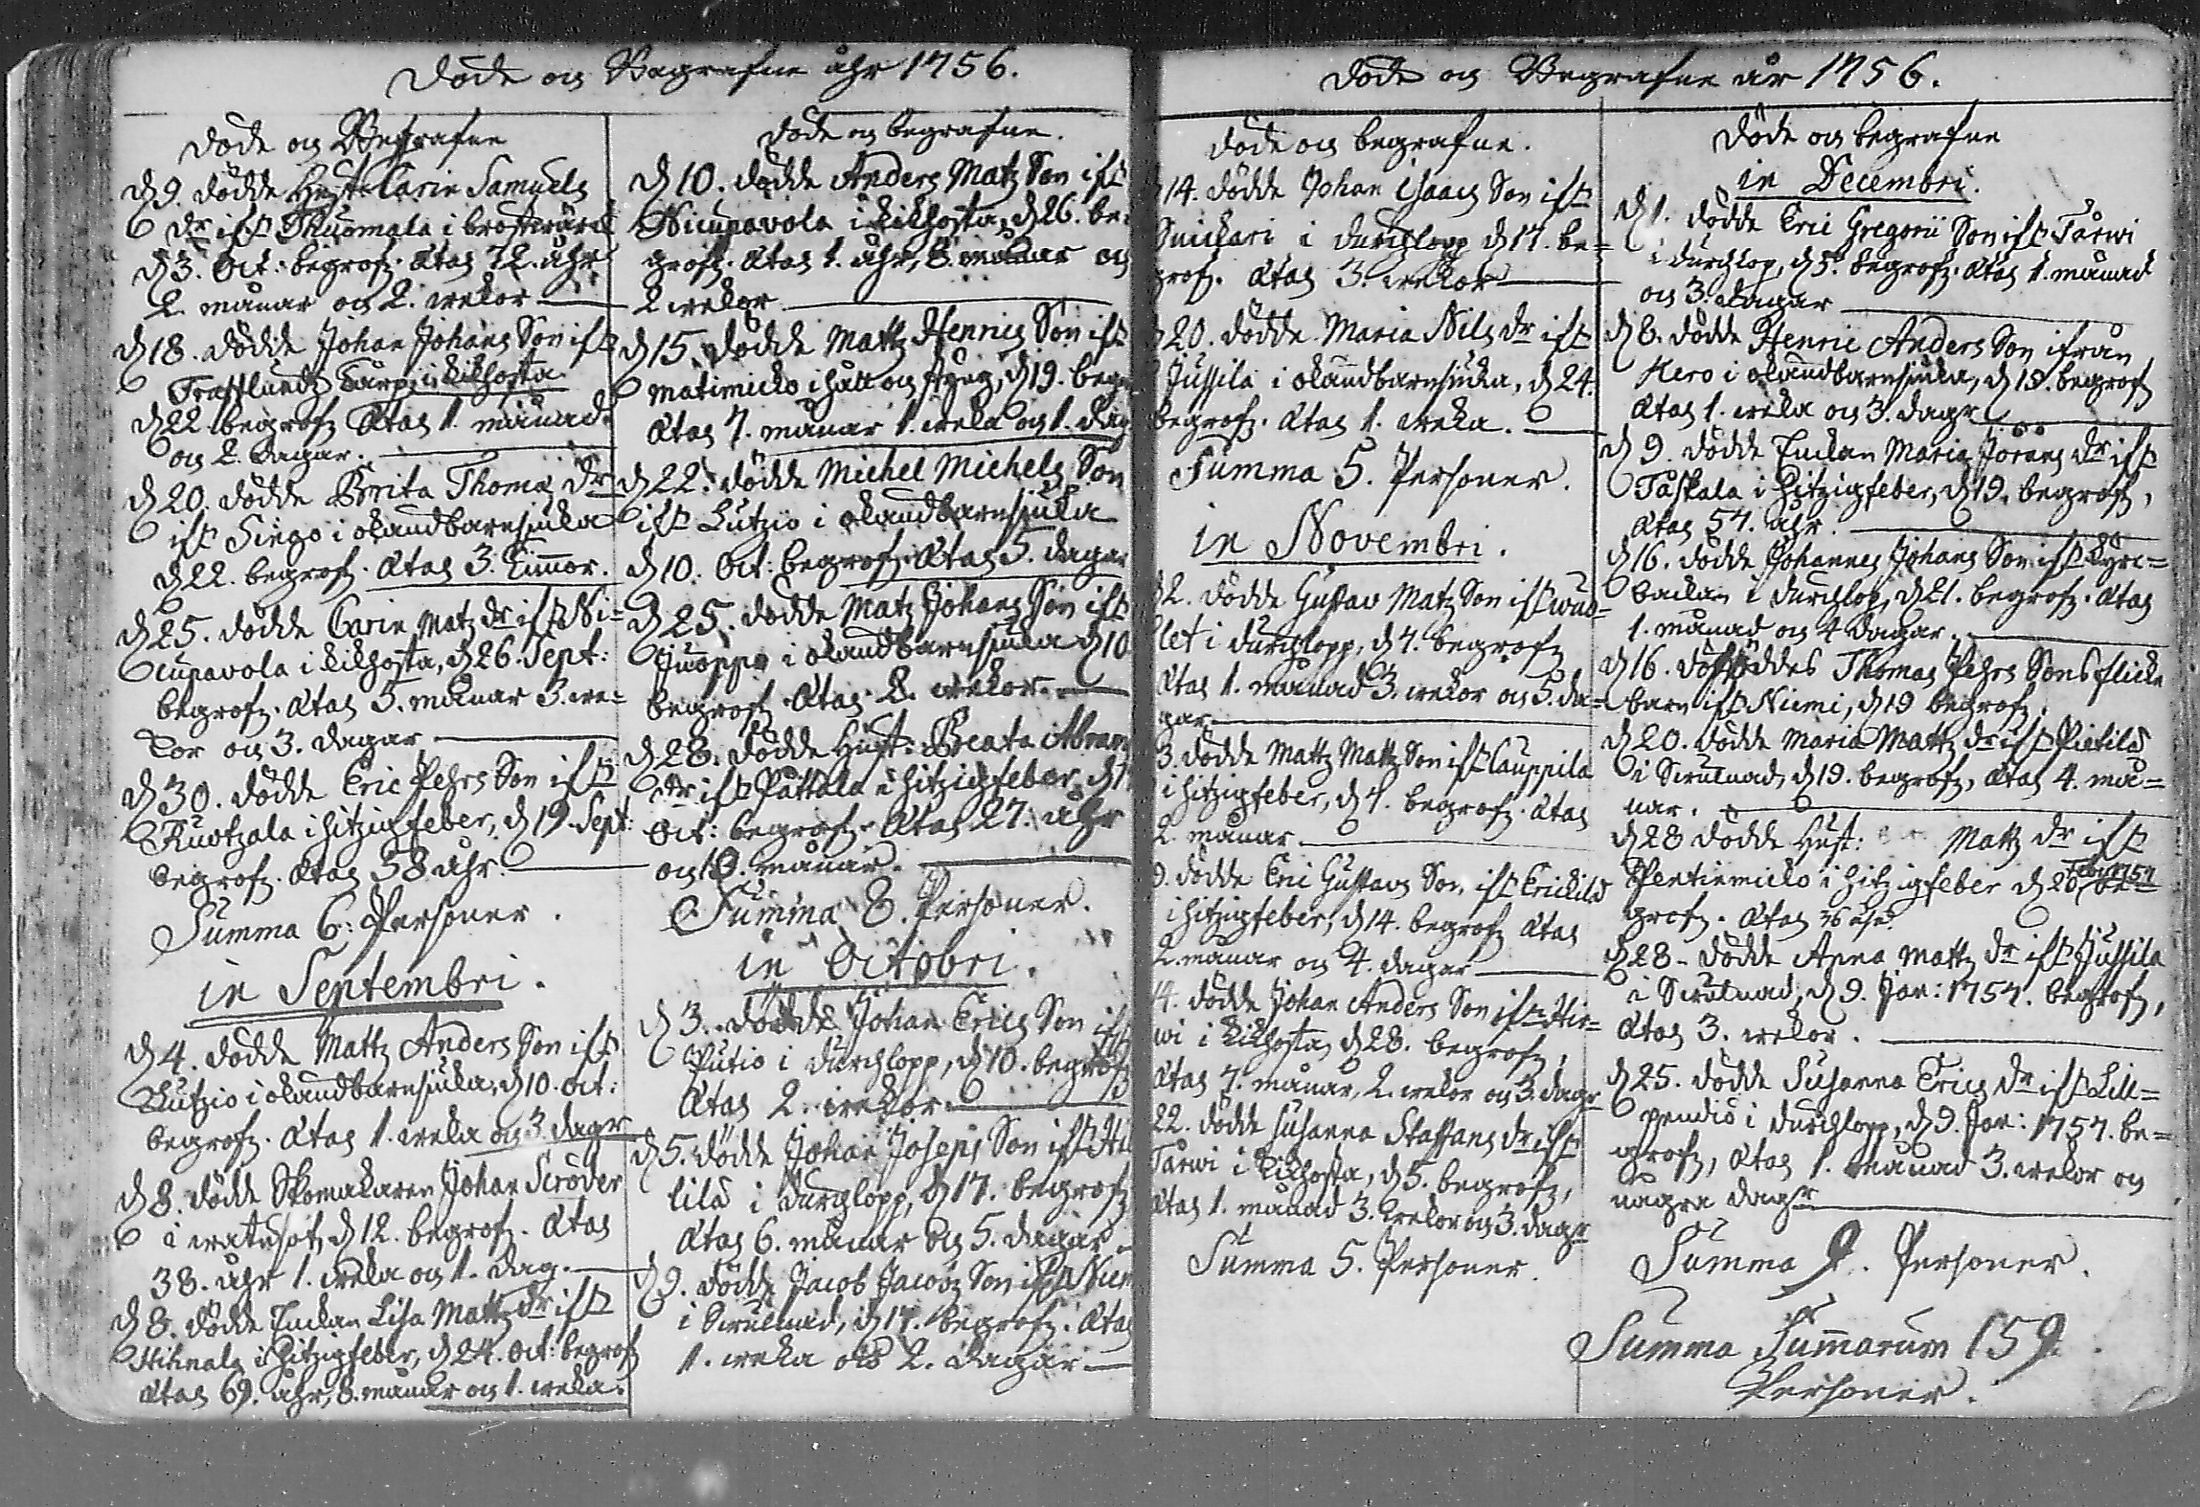 Döde och Begrafne åhr 1756.
Döde och Begrafne
d 9. dödde Hust. Carin Samuels
dr ifr. Thuomala i bröstwärck
d 3. Oct: begrofz. Ætas 72. åhr
2. månar och 2. wekor
d 18. dödde Johan Johans Son ifr
Torp i Kikhosta
d 22 begrofz Ætas 1. månad
och 2. dagar.
d 20. dödde Brita Thomæ Dr
ifr Singo i okändbarnsjuka
d 22. begrofz. Ætas 3. Timmor.
d 25. dödde Carin Matz dr ifr Ni-
cupavola i kikhosta, d 26. Sept:
begrofz. Ætas 5. månar 3. we-
kor och 3. dagar
d 30. dödde Eric Pehrs Son ifr
Kuotzala i hitzigfeber, d 19. Sept:
begrofz. Ætas 58 åhr.
Summa 6: Personer.
in Septembri.
d 4. dödde Mattz Anders Son ifr
Lutzio i okändbarnsjuka, d 10. Oct:
begrofz. Ætas 1. weka och 3. dagr
d 8. dödde Skomakaren Johan Scröder
i watusot, d 12. begrofz. Ætas
38. åhr 1. weka och 1. dag.
d 8. dödde Enckan Lisa Mattz dr ifr
Hihnala i hitzigfeber, d 24. Oct: begrofz
Ætas 69. åhr, 8. månar och 1. weka.
döde och begrafne.
d 10. dödde Anders Matz Son ifr
Nicupavola i kikhosta, d 26. be-
grofz. Ætas 1. åhr, 8. månar och
2 wekor
d 15. dödde Mattz Henrics Son ifr
Matimicko i håll och styng, d 19. begr
Ætas 7. månar 1. weka och 1. dag
d 22. dödde Michel Michels Son
ifr Lutzio i okändbarnsjuka
d 10. Oct: begrofz. Ætas 5. dagar
d 25. dödde Matz Johans Son ifr
Juoppo i okändbarnsjuka d 10
begrofz. Ætas 2. wekor.
d 28. dödde Hust: Beata Abram
dr ifr Pattala i hitzigfeber, d
Oct: begrofz. Ætas 27. åhr
och 10. månar.
Summa 8. Personer.
in Octobri.
d 3. dödde Johan Erics Son ifr
Putio i durchlopp, d 10. begrofz
Ætas 2. wekor
d 5. dödde Johan Joseps Son ifr
lilä i durchlopp, d 17. begrofz
Ætas 6. månar och 5. dagar
d 9. dödde Jacob Jacobz Son ifr Niem
i d 17. begrofz. Ætas
1. weka och 2. dagar
Döde och Begrafne år 1756.
döde och begrafne.
14. dödde Johan Isaacs Son ifr
Snickari i durchlopp d 17. be-
grof. Ætas 3. wekor
20. dödde Maria Nils dr ifr
Jussila i okändbarnsjuka, d 24.
begrofz. Ætas 1. weka.
Summa 5. Personer.
in Novembri.
2. dödde Gustav Matz Son ifr
let i durchlopp, d 7. begrofz
Ætas 1. månad 3. wekor och 5. da-
gar
3. dödde Mattz Mattz Son ifr Cauppila
i hitzigfeber, d 7. begrofz. Ætas
2. månar.
9. dödde Eric Gustavs Son, ifr Erickilä
i hitzigfeber, d 14. begrofz Ætas
2. månar och 4. dagar
14. dödde Johan Anders Son ifr Hir-
wi i kikhosta, d 28. begrofz,
Ætas 7. månar, 2. wekor och 3. dagr
22. dödde Susanna Staffans dr ifr
Tarwi i kikhosta, d 5. begrofz,
Ætas 1. månad 3. wekor och 3. dagr
Summa 5. Personer.
Döde och begrafne
in Decembri.
d 1. dödde Eric Gregorii Son ifr Tarwi
i durchlop, d 5. begrofz. Ætas 1. månad
och 3. dagar
d 8. dödde Henric Anders Son ifrån
Hero i okändbarnsjuka, d 18. begrofz
Ætas 1. weka och 3. dagr
d 9. dödde Enckan Maria Jörans dr ifr
Taskala i hitzigfeber, d 19. begrofz,
Ætas 57. åhr.
d 16. dödde Johannes Johans Son ifr Kyrc-
backan i durchlop, d 21. begrofz. Ætas
1. månad och 4 dagar.
d 16. dödföddes Thomas Pehrs Sons flicke
barn ifr Niemi, d 19 begrofz.
d 20. dödde Maria Mattz dr ifr Pietilä
i d 19. begrofz, Ætas 4. må-
nar.
d 28 dödde Hust: Mattz dr ifr
Pentinmicko i hitzigfeber d 20 be-
grofz. Ætas 36 åhr.
d 28. dödde Anna Mattz dr ifr Jussila
i d 9. Jan: 1757. begrofz,
Ætas 3. wekor.
d 25. dödde Susanna Erics dr ifr Lill-
pendis i durchlopp, d 9. Jan: 1757. be-
grofz, Ætas 1. månad 3. wekor och
några dagr
Summa 9. Personer.
Summa Summarum 159.
Personer.